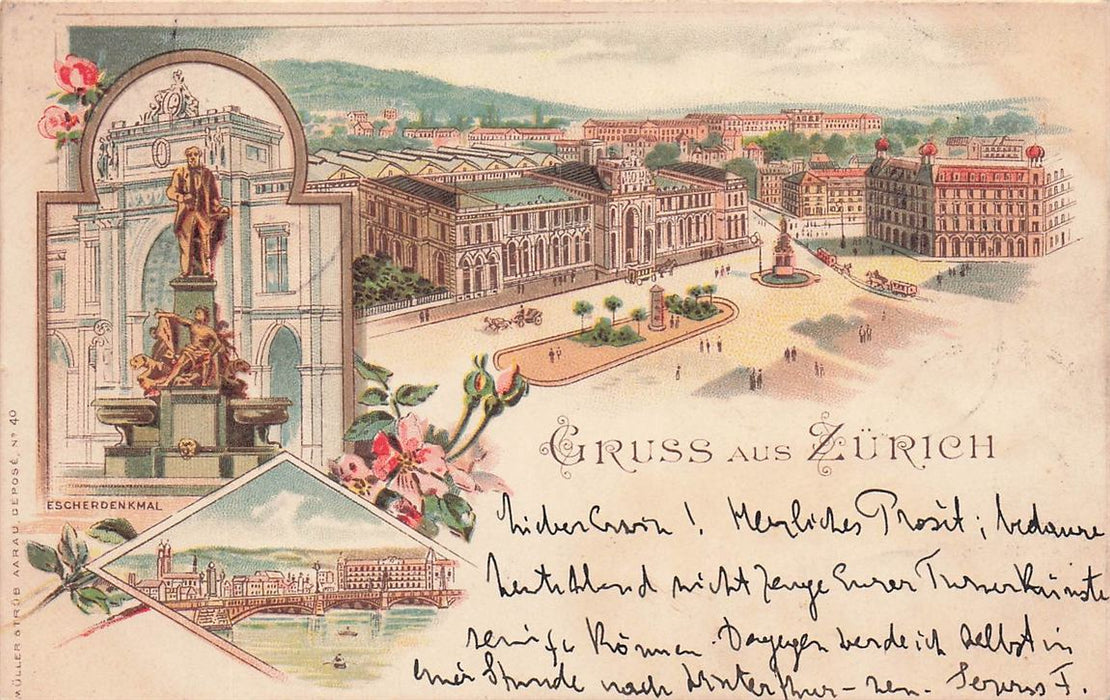 GRUSS AUS ZÜRICH
ESCHERDENKMAL
MÜLLER & TRÜB AARAU. DEPOSÉ. Nº 40
Lieber Erwin! Herzliches Prosit; bedaure
nicht Zeuge Eurer Turnerkünste
können. Dagegen werde ich selbst in
einer Stunde nach Winterthur Servus F.